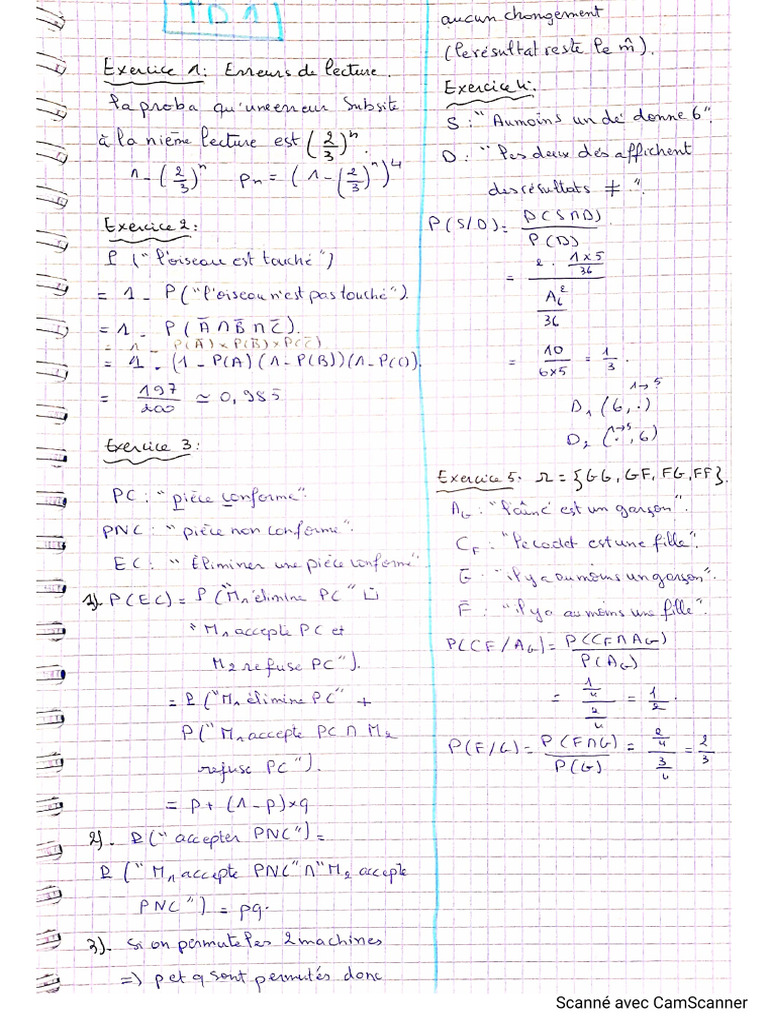 TD1
Exercice 1: Erreurs de lecture.
la proba qu'une erreur subsite
à la nième lecture est (2/3)^n.
1-(2/3)^n  pn = (1-(2/3)^n)^4
Exercice 2:
P("l'oiseau est touché")
= 1 - P("l'oiseau n'est pas touché").
= 1 - P(A̅ ∩ B̅ ∩ C̅).
= 1 - P(A̅) × P(B̅) × P(C̅)
= 1 - (1-P(A)(1-P(B))(1-P(C)).
= 197/200 ≃ 0,985
Exercice 3:
PC : "pièce conforme".
PNC : "pièce non conforme".
EC : "Éliminer une pièce conforme".
1). P(EC) = P("M1 élimine PC" ⊔
"M1 accepte PC et
M2 refuse PC").
= P("M1 élimine PC" +
P("M1 accepte PC ∩ M2
refuse PC").
= p + (1-p)×q
2). P("accepter PNC") =
P("M1 accepte PNC" ∩ "M2 accepte
PNC") = pq.
3). si on permute les 2 machines
=> p et q sont permutés donc
aucun changement
(le résultat reste le m̂).
Exercice 4:
S : "Au moins un dé donne 6".
D : "Les deux dés affichent
des résultats ≠ ".
P(S/D) = P(S∩D)/P(D)
= (2 · (1×5)/36)/(A_6^2/36)
= 10/(6×5) = 1/3.
1→5
D1 (6, .)
1→5
D2 (., 6)
Exercice 5: Ω = {GG, GF, FG, FF}.
AG : "l'aîné est un garçon".
CF : "le cadet est une fille".
G "il y a au moins un garçon".
F : "il y a au moins une fille".
P(CF/AG) = P(CF∩AG)/P(AG)
= (1/4)/(2/4) = 1/2.
P(F/G) = P(F∩G)/P(G) = (2/4)/(3/4) = 2/3
Scanné avec CamScanner